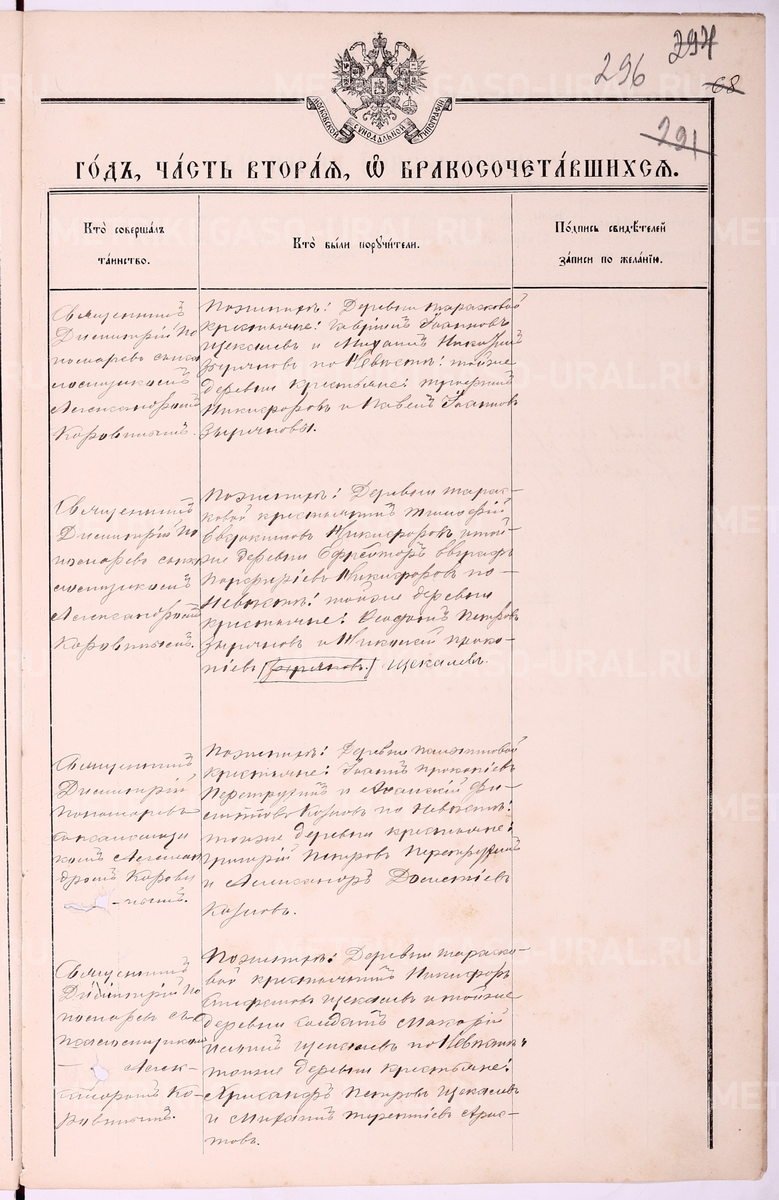 297
296
68
291
МОСКОВСКОЙ СѴНОДАЛЬНОЙ ТИПОГРАФІИ
ГО́ДЪ, ЧА́СТЬ ВТОРА́Я, Ѡ҆ БРАКОСОЧЕТА́ВШИХСЯ.
Кто̀ соверша́лъ
та́инство.
Кто̀ бы́ли порꙋчи́тели.
По́дпись свидѣ́телей
за́писи по жела́нїю.
Священникъ
Димитрій По
номаревъ съ пса
ломщикомъ
Александромъ
Коровинымъ.
По женихѣ: Деревни Тарасковой
крестьяне: Гавріилъ Іоанновъ
Щекалевъ и Михаилъ
Зыряновъ по Невѣстѣ: той же
деревни крестьяне:
Никифоровъ и Павелъ Іоанновъ
Зыряновы.
Священникъ
Димитрій По
номаревъ съ пса
ломщикомъ
Александромъ
Коровинымъ.
По женихѣ: Деревни Тарас-
ковой крестьянинъ Тимофей
Евдокимовъ Никифоровъ и той-
же деревни Ефрейторъ Евграфъ
Порфиріевъ Никифоровъ по-
Невѣстѣ: той же деревни
крестьяне: Ѳеодоръ Петровъ
Зыряновъ и Николай Проко-
піевъ (Зыряновъ) Щекалевъ.
Священникъ
Димитрій
Пономаревъ
съ псаломщи
комъ Алексан
дромъ Корови
-нымъ.
По женихѣ: Деревни
крестьяне: Іоаннъ Прокопіевъ
и
Козловъ по Невѣстѣ:
той же деревни крестьяне:
Григорій Петровъ
и Александръ Дометіевъ
Козловъ.
Священникъ
Димитрій По
номаревъ съ
псаломщикомъ
Алек-
сандромъ Ко-
ровинымъ.
По женихѣ: Деревни Тараско-
вой крестьянинъ Никифоръ
Стефановъ Щекалевъ и той же
деревни солдатъ Макарій
Щекалевъ по Невѣстѣ:
той же деревни крестьяне:
Александръ Петровъ Щекалевъ
и Михаилъ Терентіевъ Арис-
товъ.